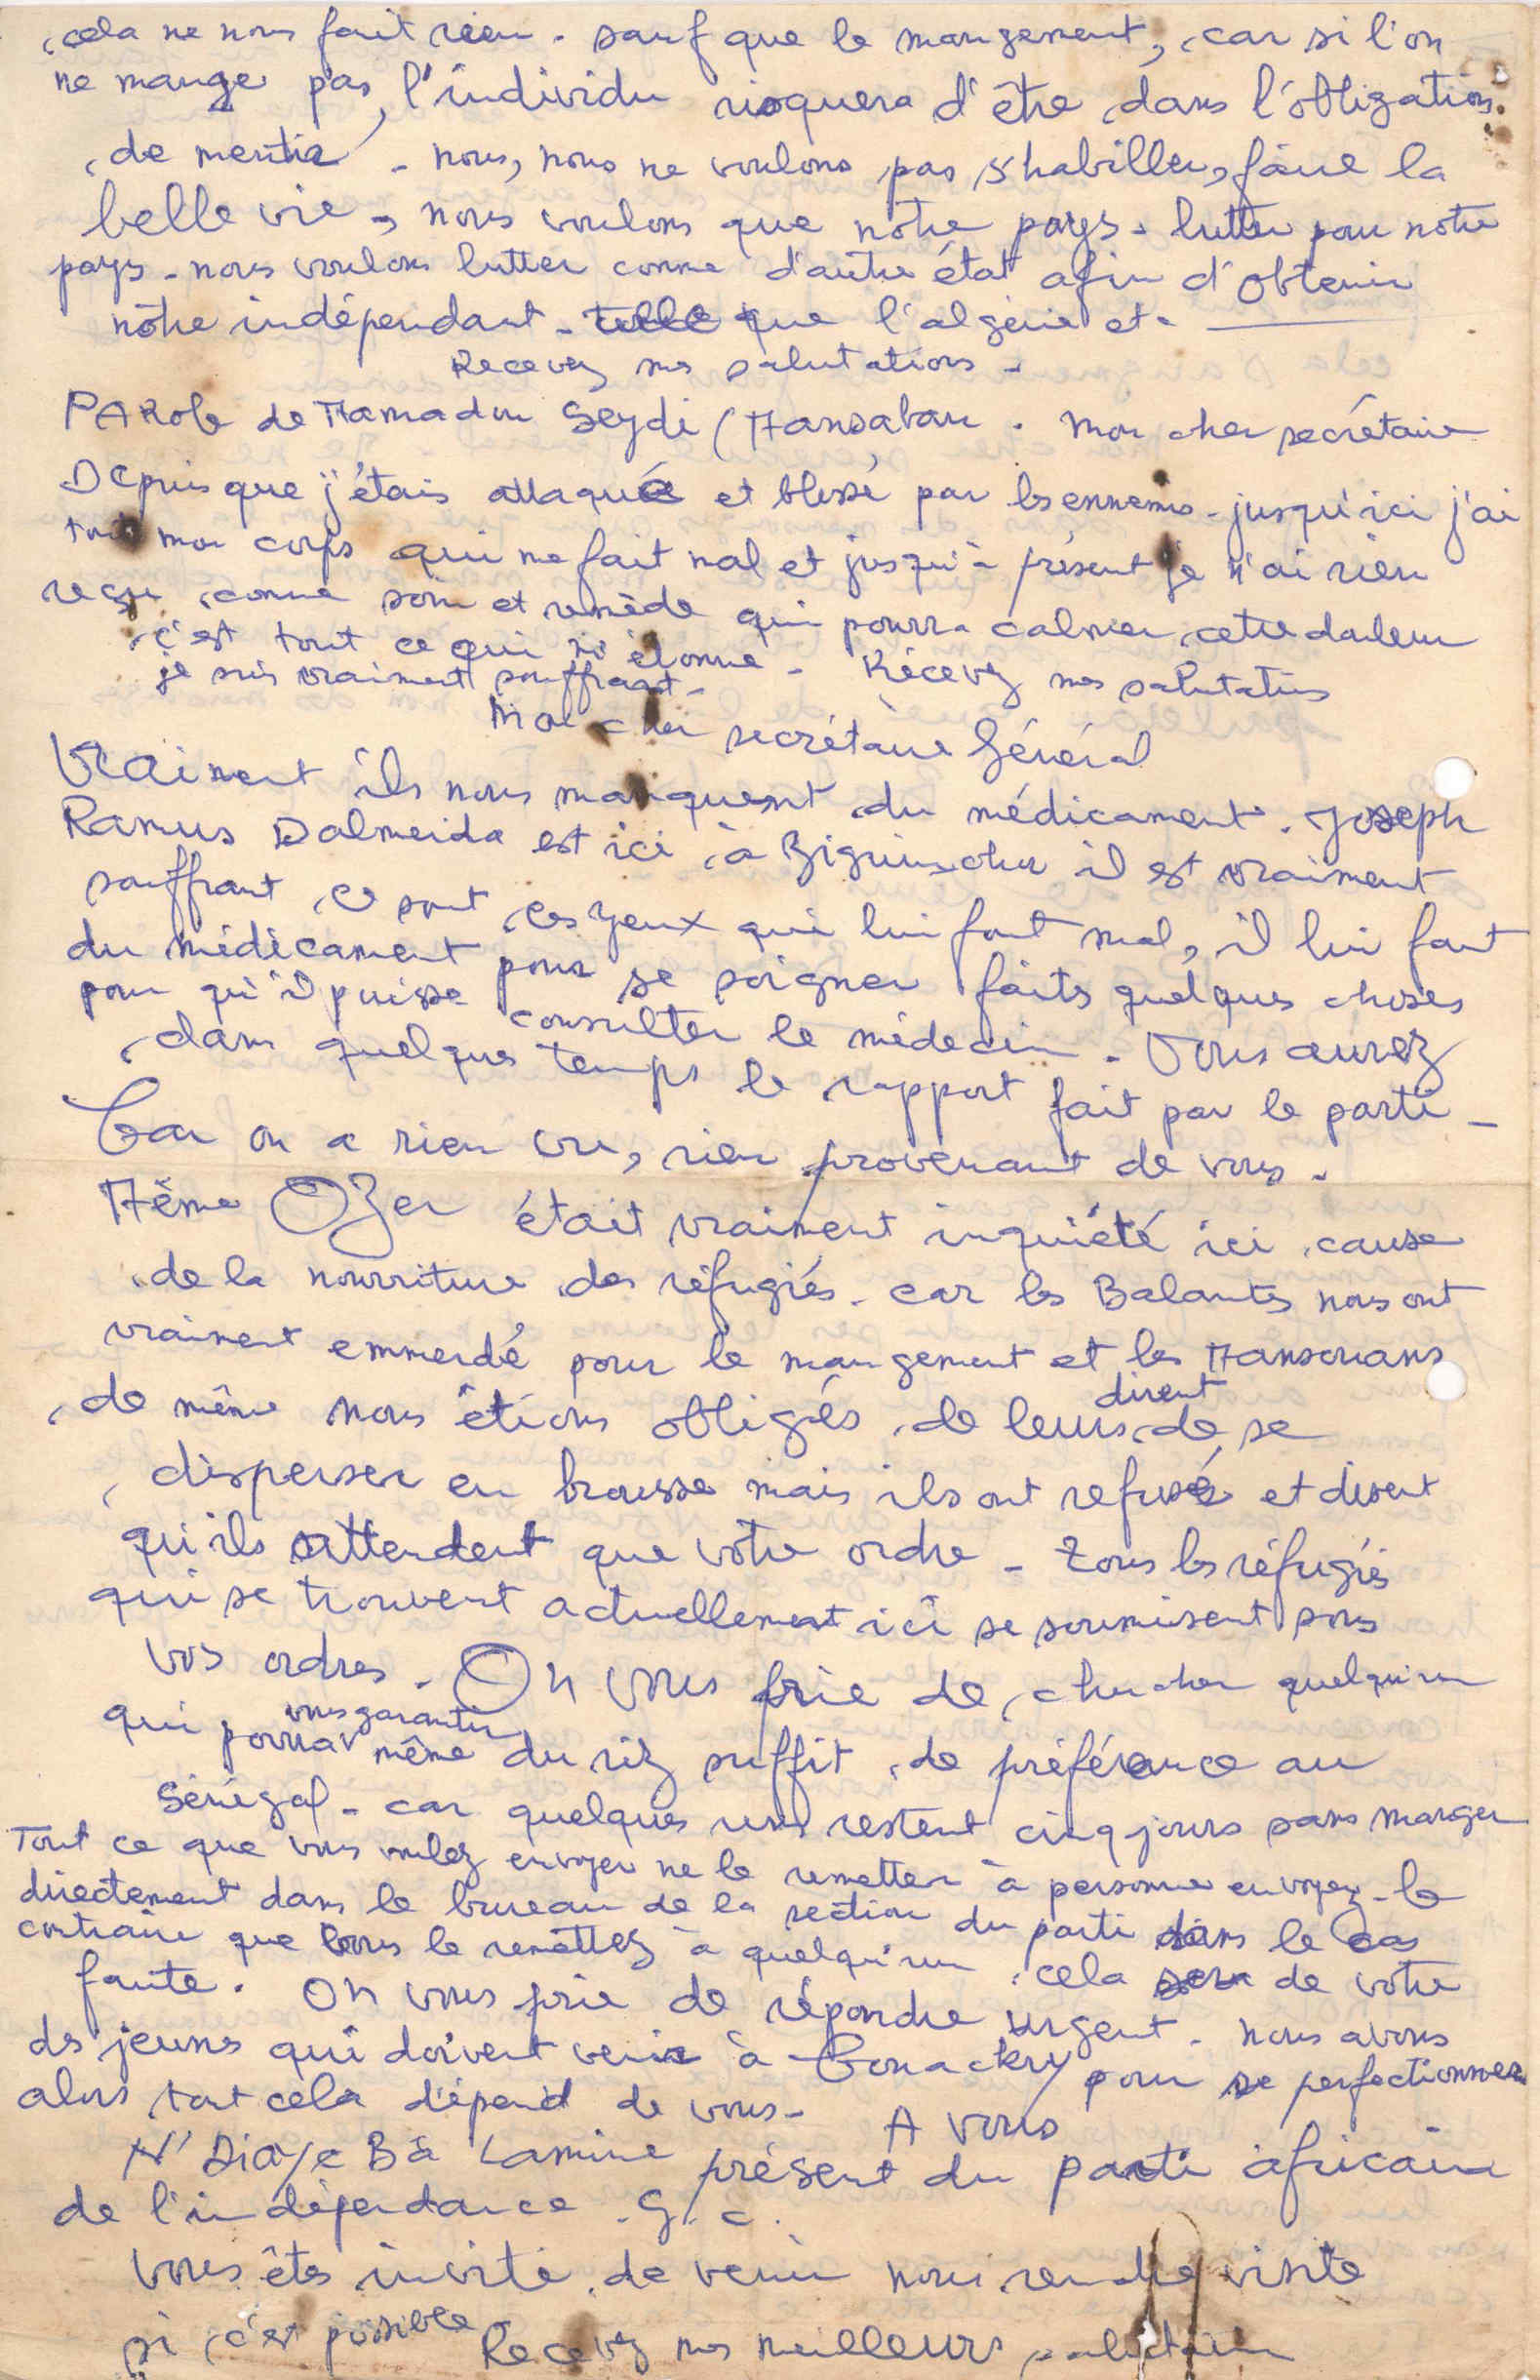 cela ne nous fait rien. sauf que le mangement, car si l'on
ne mange pas, l'individu risquera d'être dans l'obligation
de mentir - nous, nous ne voulons pas s'habiller, faire la
belle vie -, nous voulons que notre pays - lutter pour notre
pays - nous voulons lutter comme d'autre état afin d'obtenir
nôtre indépendant - telle que l'algérie et -
Recevez mes salutations -
PARole de Mamadou Seydi (Mansabau. mon cher secrétaire
Depuis que j'étais attaqué et blessé par les ennemis - jusqu'ici j'ai
tout mon corps qui me fait mal et jusqu'à présent je n'ai rien
reçu comme soin et remède qui pourra calmer cette douleur
c'est tout ce qui m'étonne - Récevez mes salutations
je suis vraiment souffrant -
Mon cher secrétaire Général
Vraiment ils nous manquent du médicament. Joseph
Ramus Dalmeida est ici à Ziguinchor il est vraiment
souffrant ce sont ces yeux qui lui font mal, il lui faut
du médicament pour se soigner faits quelques choses
pour qu'il puisse consulter le médecin. Vous aurez
dans quelques temps le rapport fait par le parti -
Car on a rien vu, rien provenant de vous -
Même Ozer était vraiment inquiété ici cause
de la nourriture des réfugiés - car les Balantes nous ont
vraiment emmerdé pour le mangement et les Mansouans
de même nous étions obligés de leurs dirent de se
disperser en brousse mais ils ont refusé et disent
qu'ils attendent que votre ordre - Tous les réfugiés
qui se trouvent actuellement ici se soumisent sous
vos ordres - On vous prie de chercher quelqu'un
qui pourra vous garantir même du riz suffit de préférence au
Sénégal - car quelques uns restent cinq jours sans manger
Tout ce que vous voulez envoyer ne le remetter à personne envoyez-le
directement dans le bureau de la section du parti dans le cas
contraire que vous le remettez à quelqu'un cela sera de votre
faute. On vous prie de répondre urgent - nous avons
des jeunes qui doivent venir à Conackry pour se perfectionner
alors tout cela dépend de vous - A vous
N'Diaye Bâ Lamine présent du parti africain
de l'indépendance. G. C.
Vous êtes invité de venir nous rendre visite
si c'est possible Recevez nos meilleurs salutation